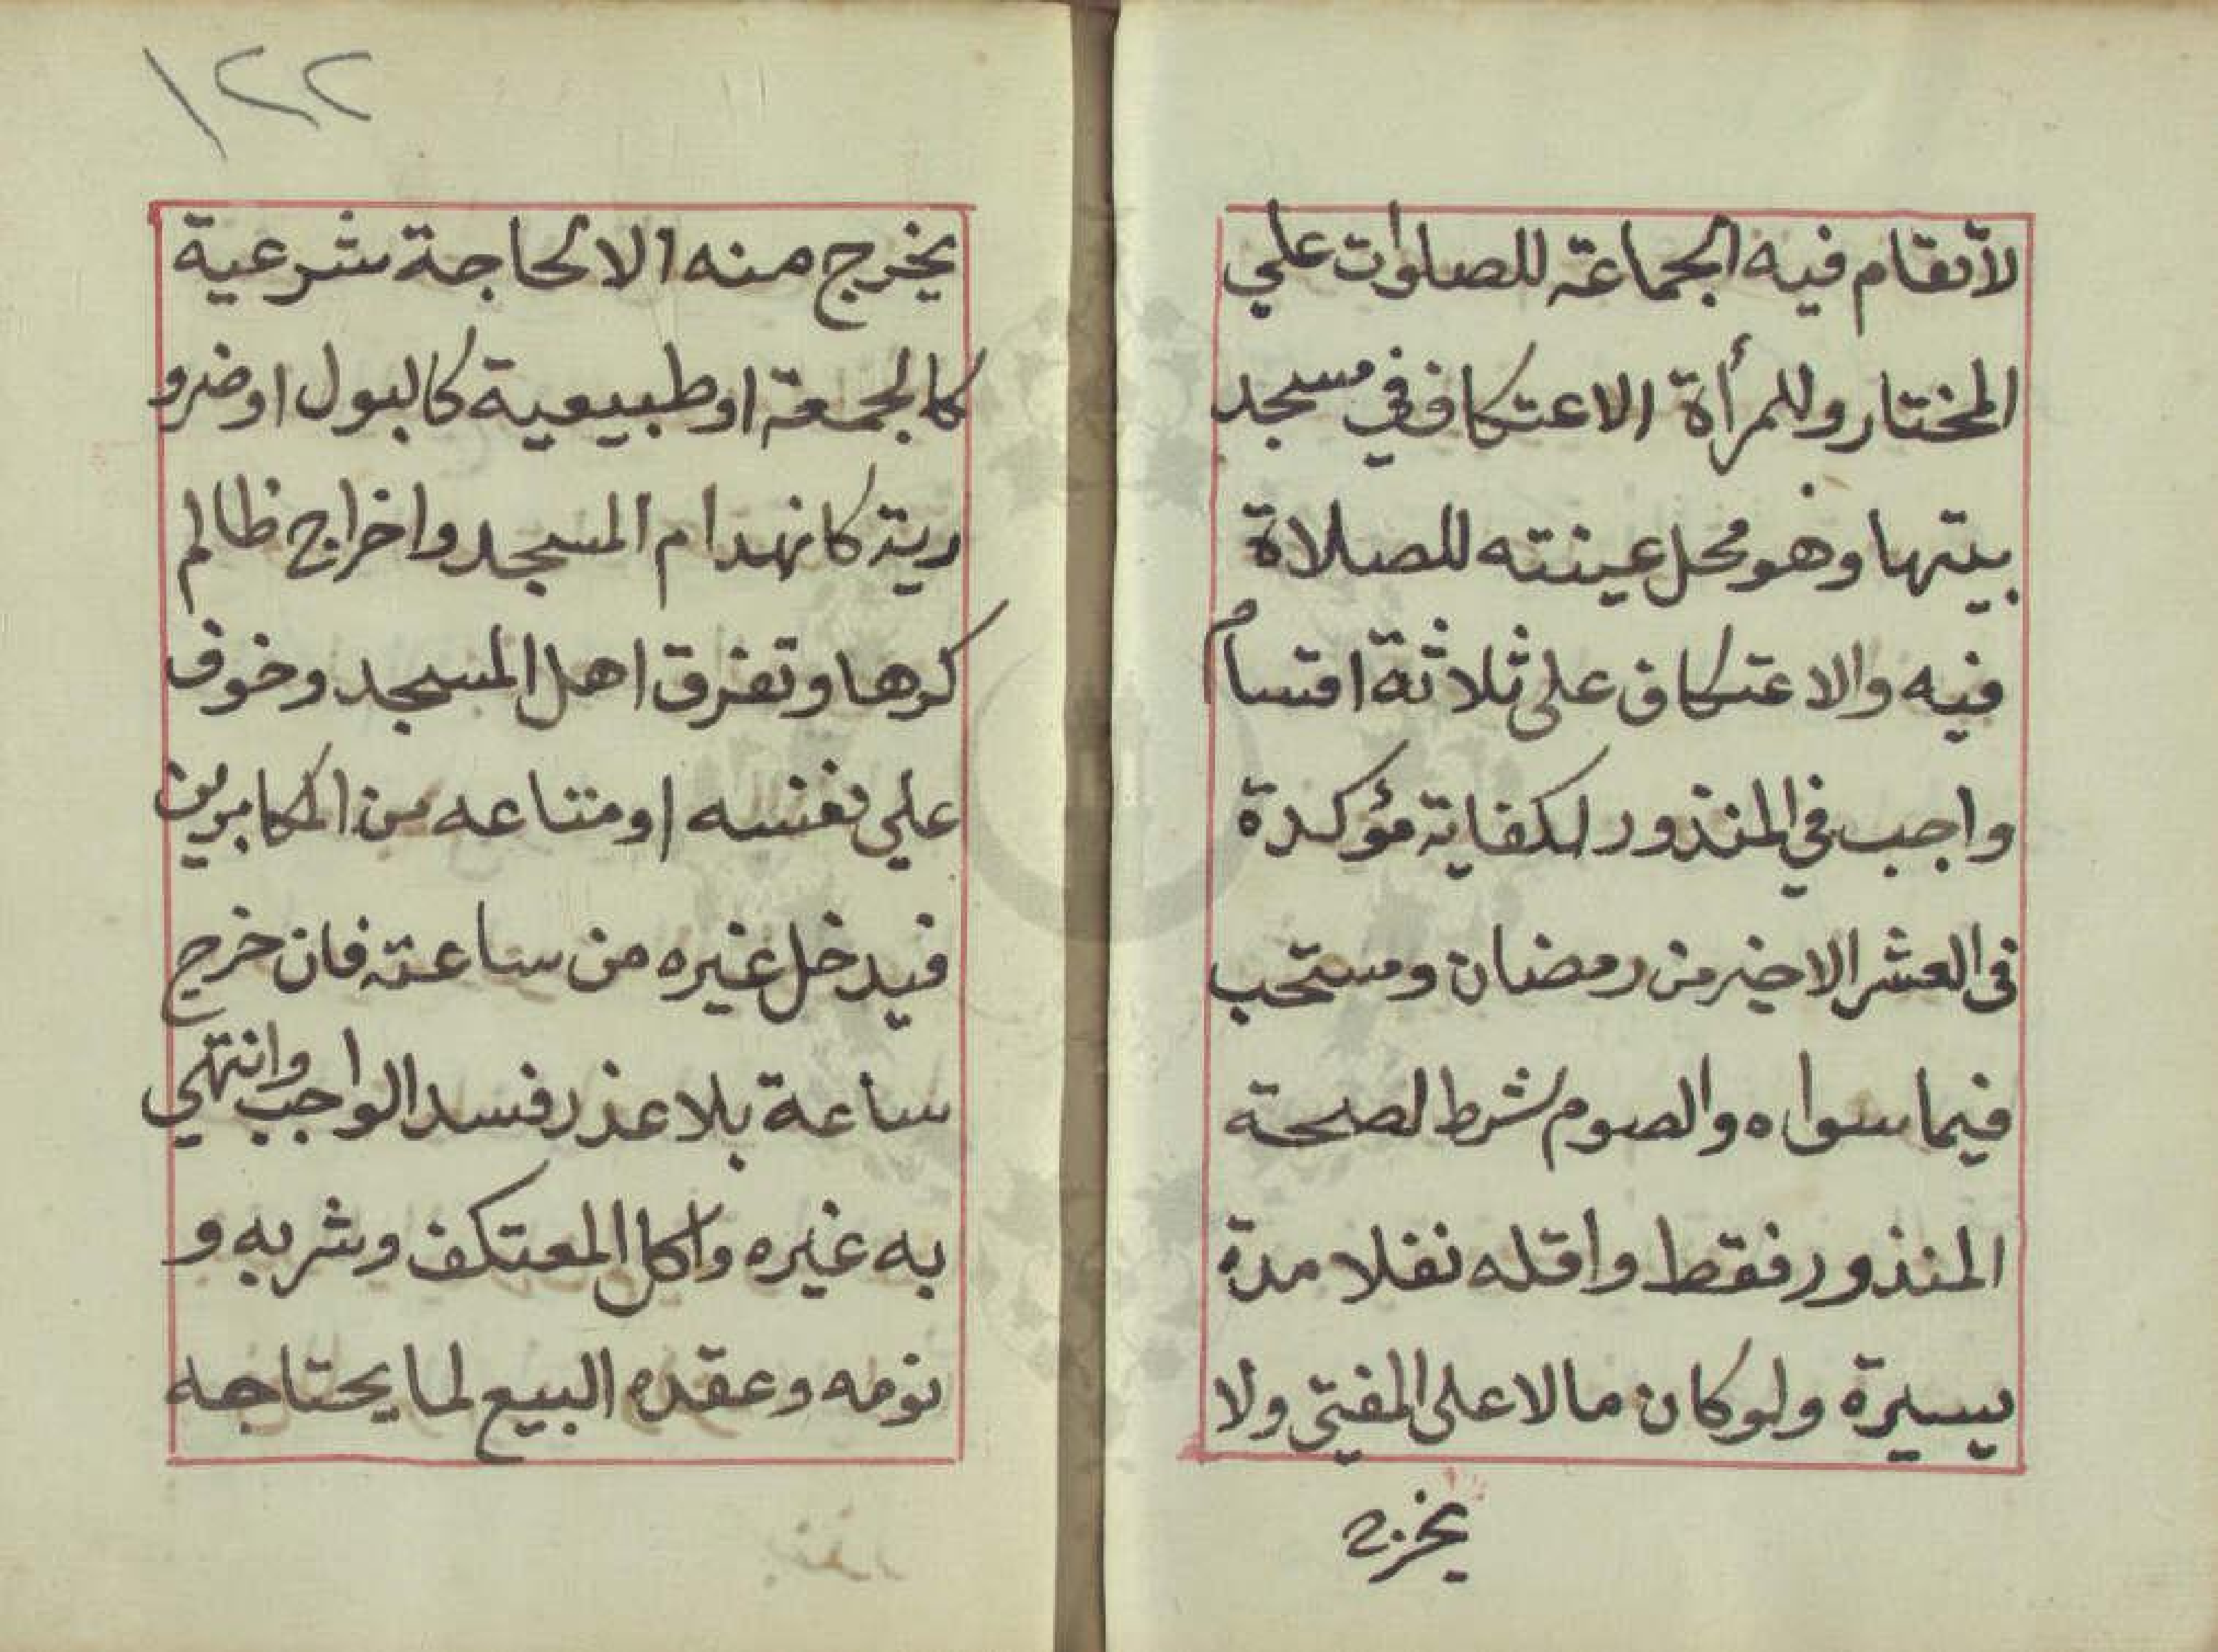 لا تقام فيه الجماعة للصلوات علي
المختار وللمرأة الاعتكاف في مسجد
بيتها وهو محل عينته للصلاة
فيه والاعتكاف على ثلاثة اقسام
واجب في المنذور لكفاية مؤكدة
في العشر الاخير من رمضان ومستحب
فيما سواه والصوم شرط لصحة
المنذور فقط واقله نفلا مدة
يسيرة ولو كان مالا على المفتى ولا
يخرج
١٢٢
يخرج منه الا لحاجة شرعية
كالجمعة او طبيعية كالبول او ضرو
رية كانهدام المسجد واخراج ظالم
كرها وتفرق اهل المسجد وخوف
علي نفسه او متاعه من المكابرين
فيدخل غيره من ساعته فان خرج
ساعة بلا عذر فسد الواجب وانتهي
به غيره واكل المعتكف وشربه و
نومه وعقده البيع لما يحتاجه